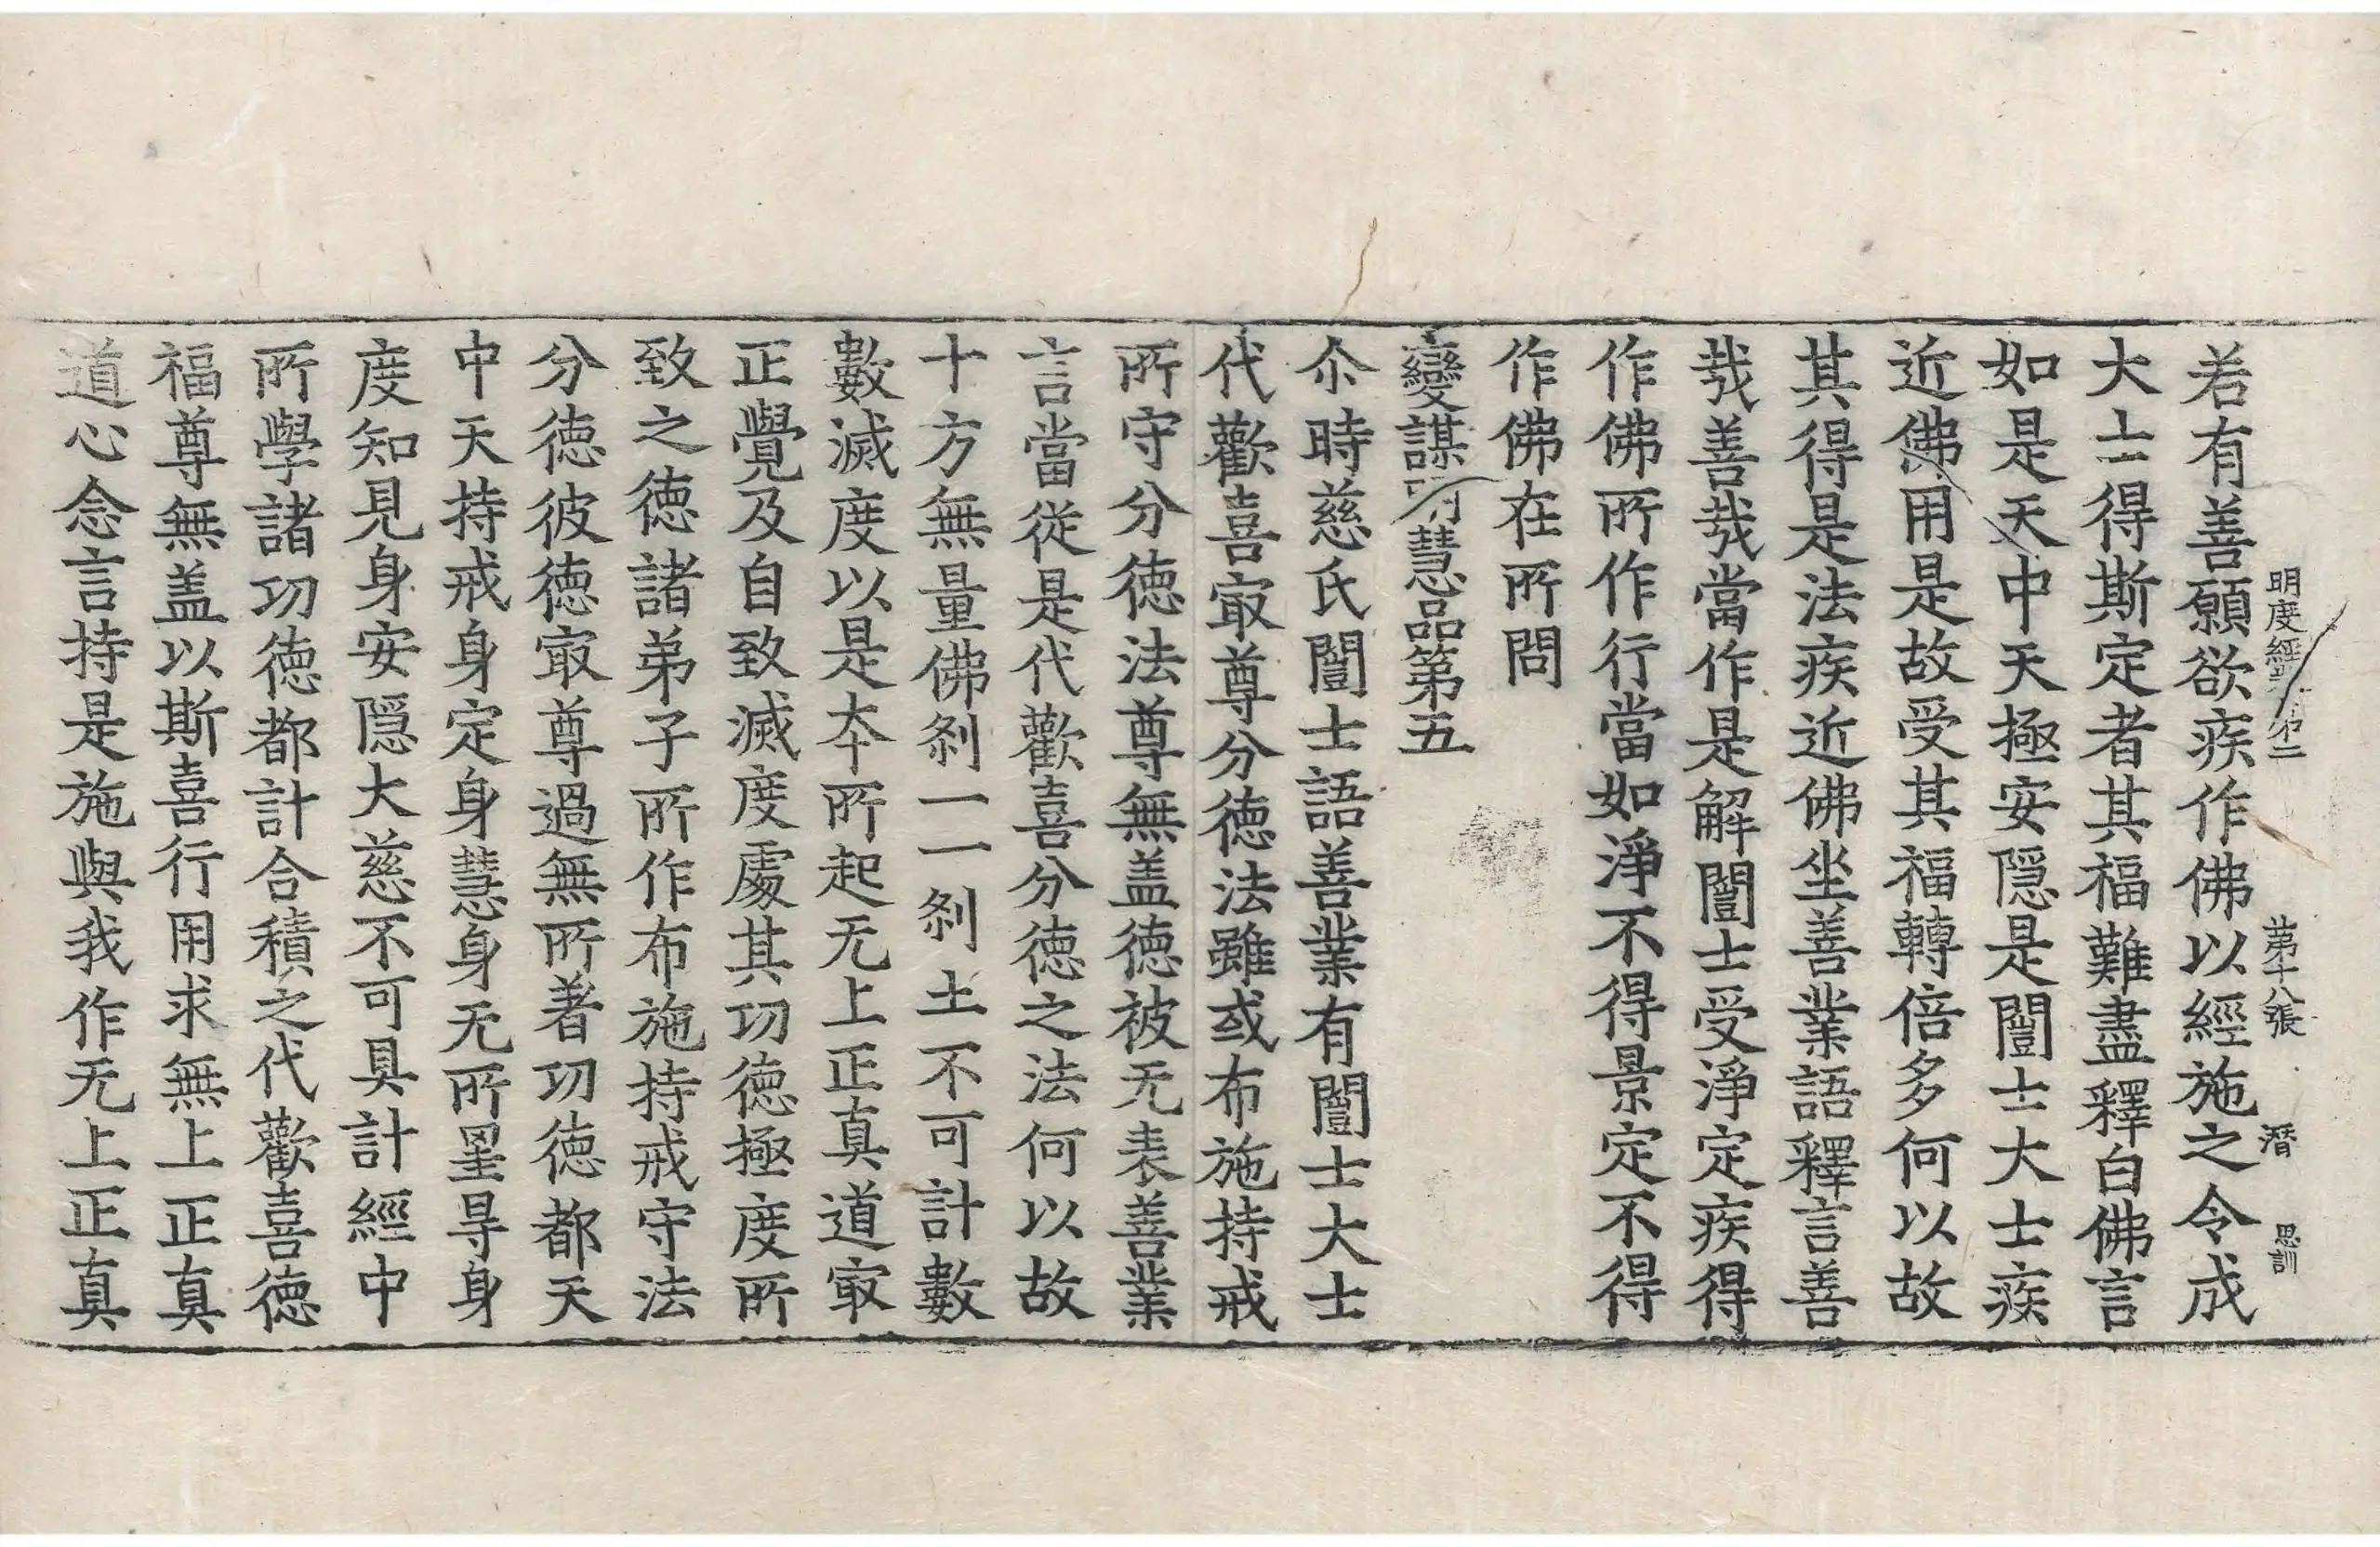 明度經 第二 第十八張 潛 思訓
若有善願欲疾作佛以經施之令成
大士得斯定者其福難盡釋白佛言
如是天中天極安隱是闓士大士疾
近佛用是故受其福轉倍多何以故
其得是法疾近佛坐善業語釋言善
哉善哉當作是解闓士受淨定疾得
作佛所作行當如淨不得景定不得
作佛在所問
變謀明慧品第五
尒時慈氏闓士語善業有闓士大士
代歡喜冣尊分德法雖或布施持戒
所守分德法尊無盖德被无表善業
言當從是代歡喜分德之法何以故
十方無量佛剎一一剎土不可計數
數滅度以是夲所起无上正真道冣
正覺及自致滅度處其功德極度所
致之德諸弟子所作布施持戒守法
分德彼德冣尊過無所著功德都天
中天持戒身定身慧身无所罣㝵身
度知見身安隱大慈不可具計經中
所學諸功德都計合積之代歡喜德
福尊無盖以斯喜行用求無上正真
道心念言持是施與我作无上正真